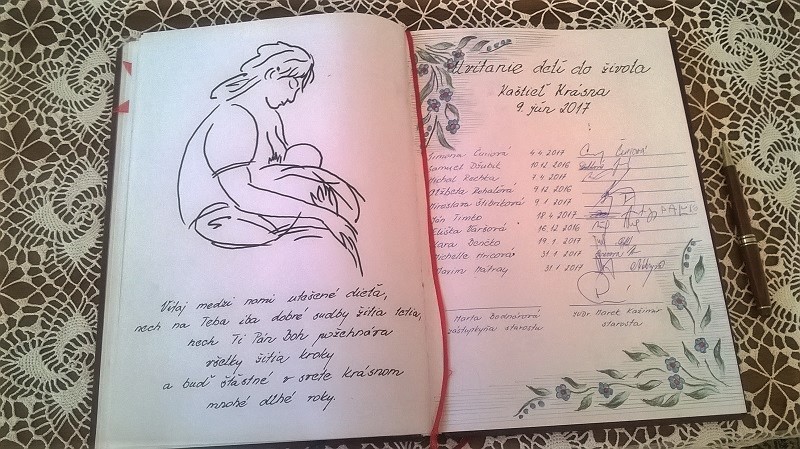 Vitaj medzi nami utešené dieťa,
nech na Teba iba dobré sudby žitia letia,
nech Ti Pán Boh požehnáva
všelky žitia kroky
a buď šťastné v svete krásnom
mnohé dlhé roky.
Uvítanie detí do života
Kaštieľ Krásna
9. jún 2017
Simona Čuniová 4.4.2017
Samuel Džubik 10.12.2016
Michal Rachka 7.4.2017
Alžbeta Rohaľová 9.12.2016
Miroslava Štibriková 9.1.2017
Ján Timko 18.4.2017
Eliška Váršová 16.12.2016
Klara Denčko 19.1.2017
Michelle Hricová 31.1.2017
Maxim Matray 31.1.2017
Marta Bodnárová
zástupkyňa starostu
JUDr. Marek Kažimír
starosta